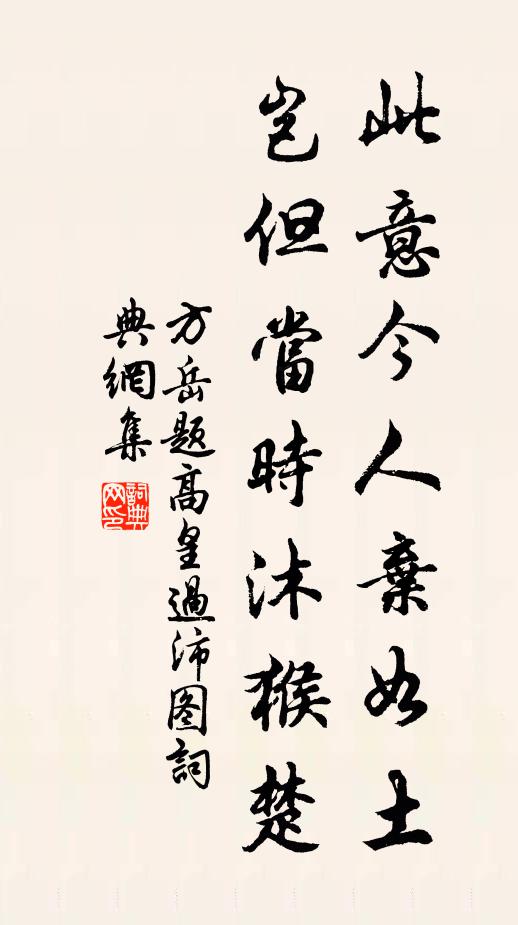 此意今人棄如土
豈但當時沐猴楚
方岳題高皇過沛图詞
典網集
詞典
网印